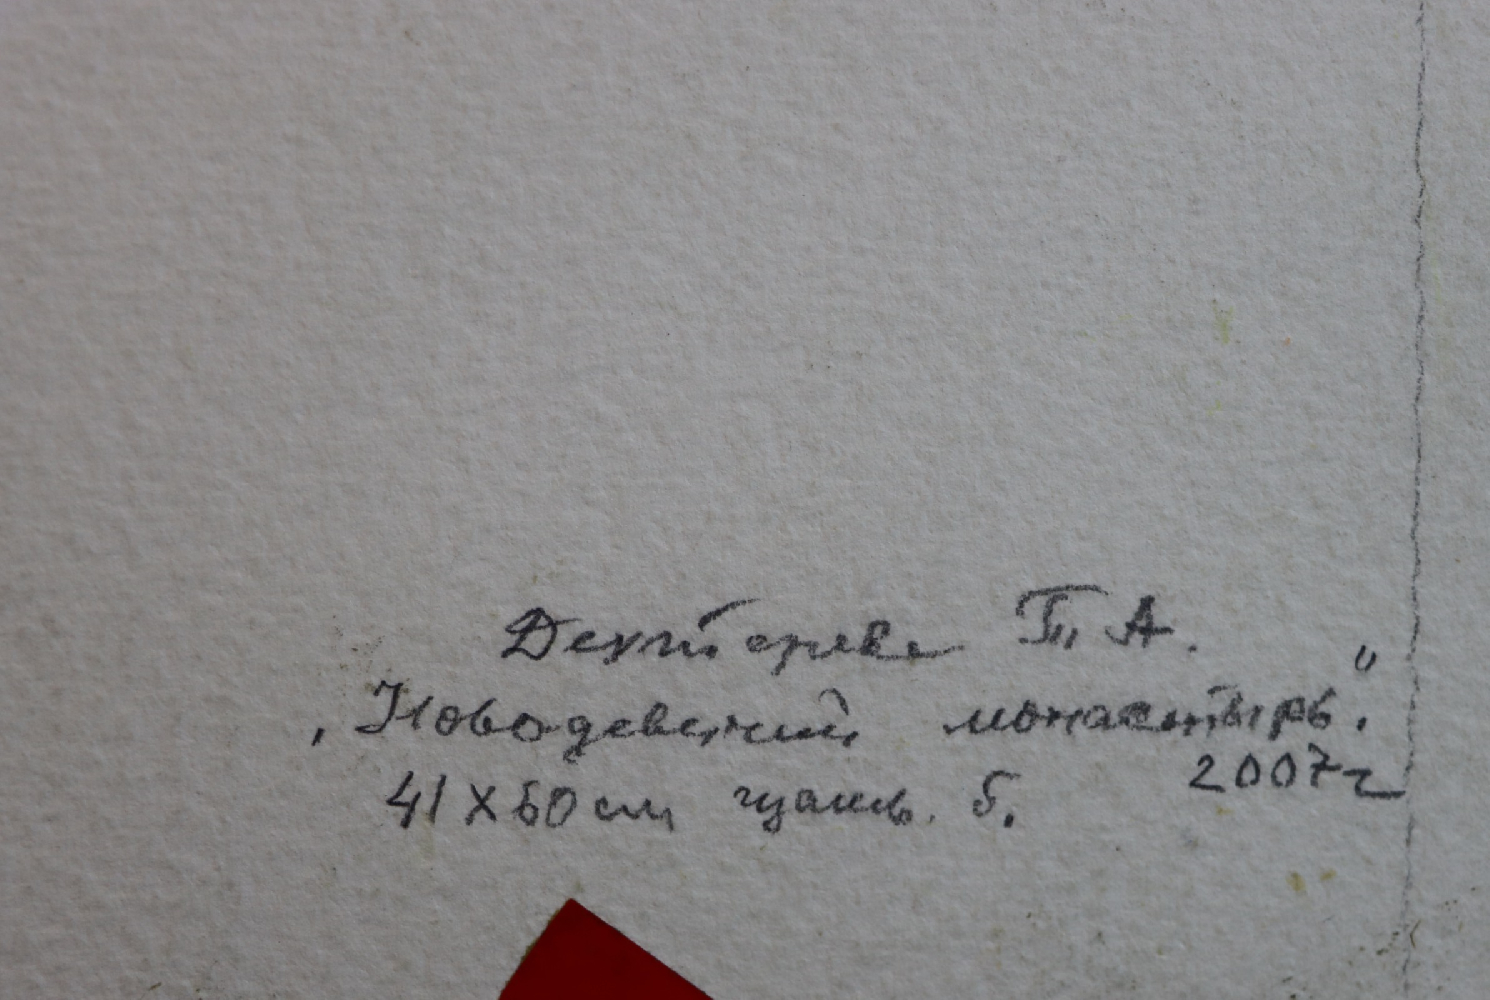 Дехтерева Т А.
„Новодевичий монастырь."
2007г
41 х 60 см гуашь. б.